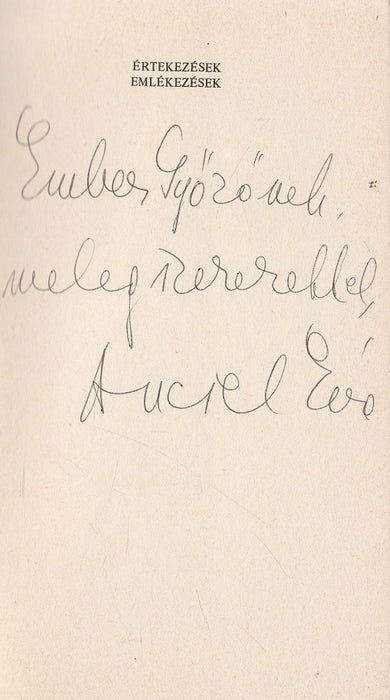 ÉRTEKEZÉSEK
EMLÉKEZÉSEK
Ember Győzőnek,
meleg szeretettel,
Ancsel Éva